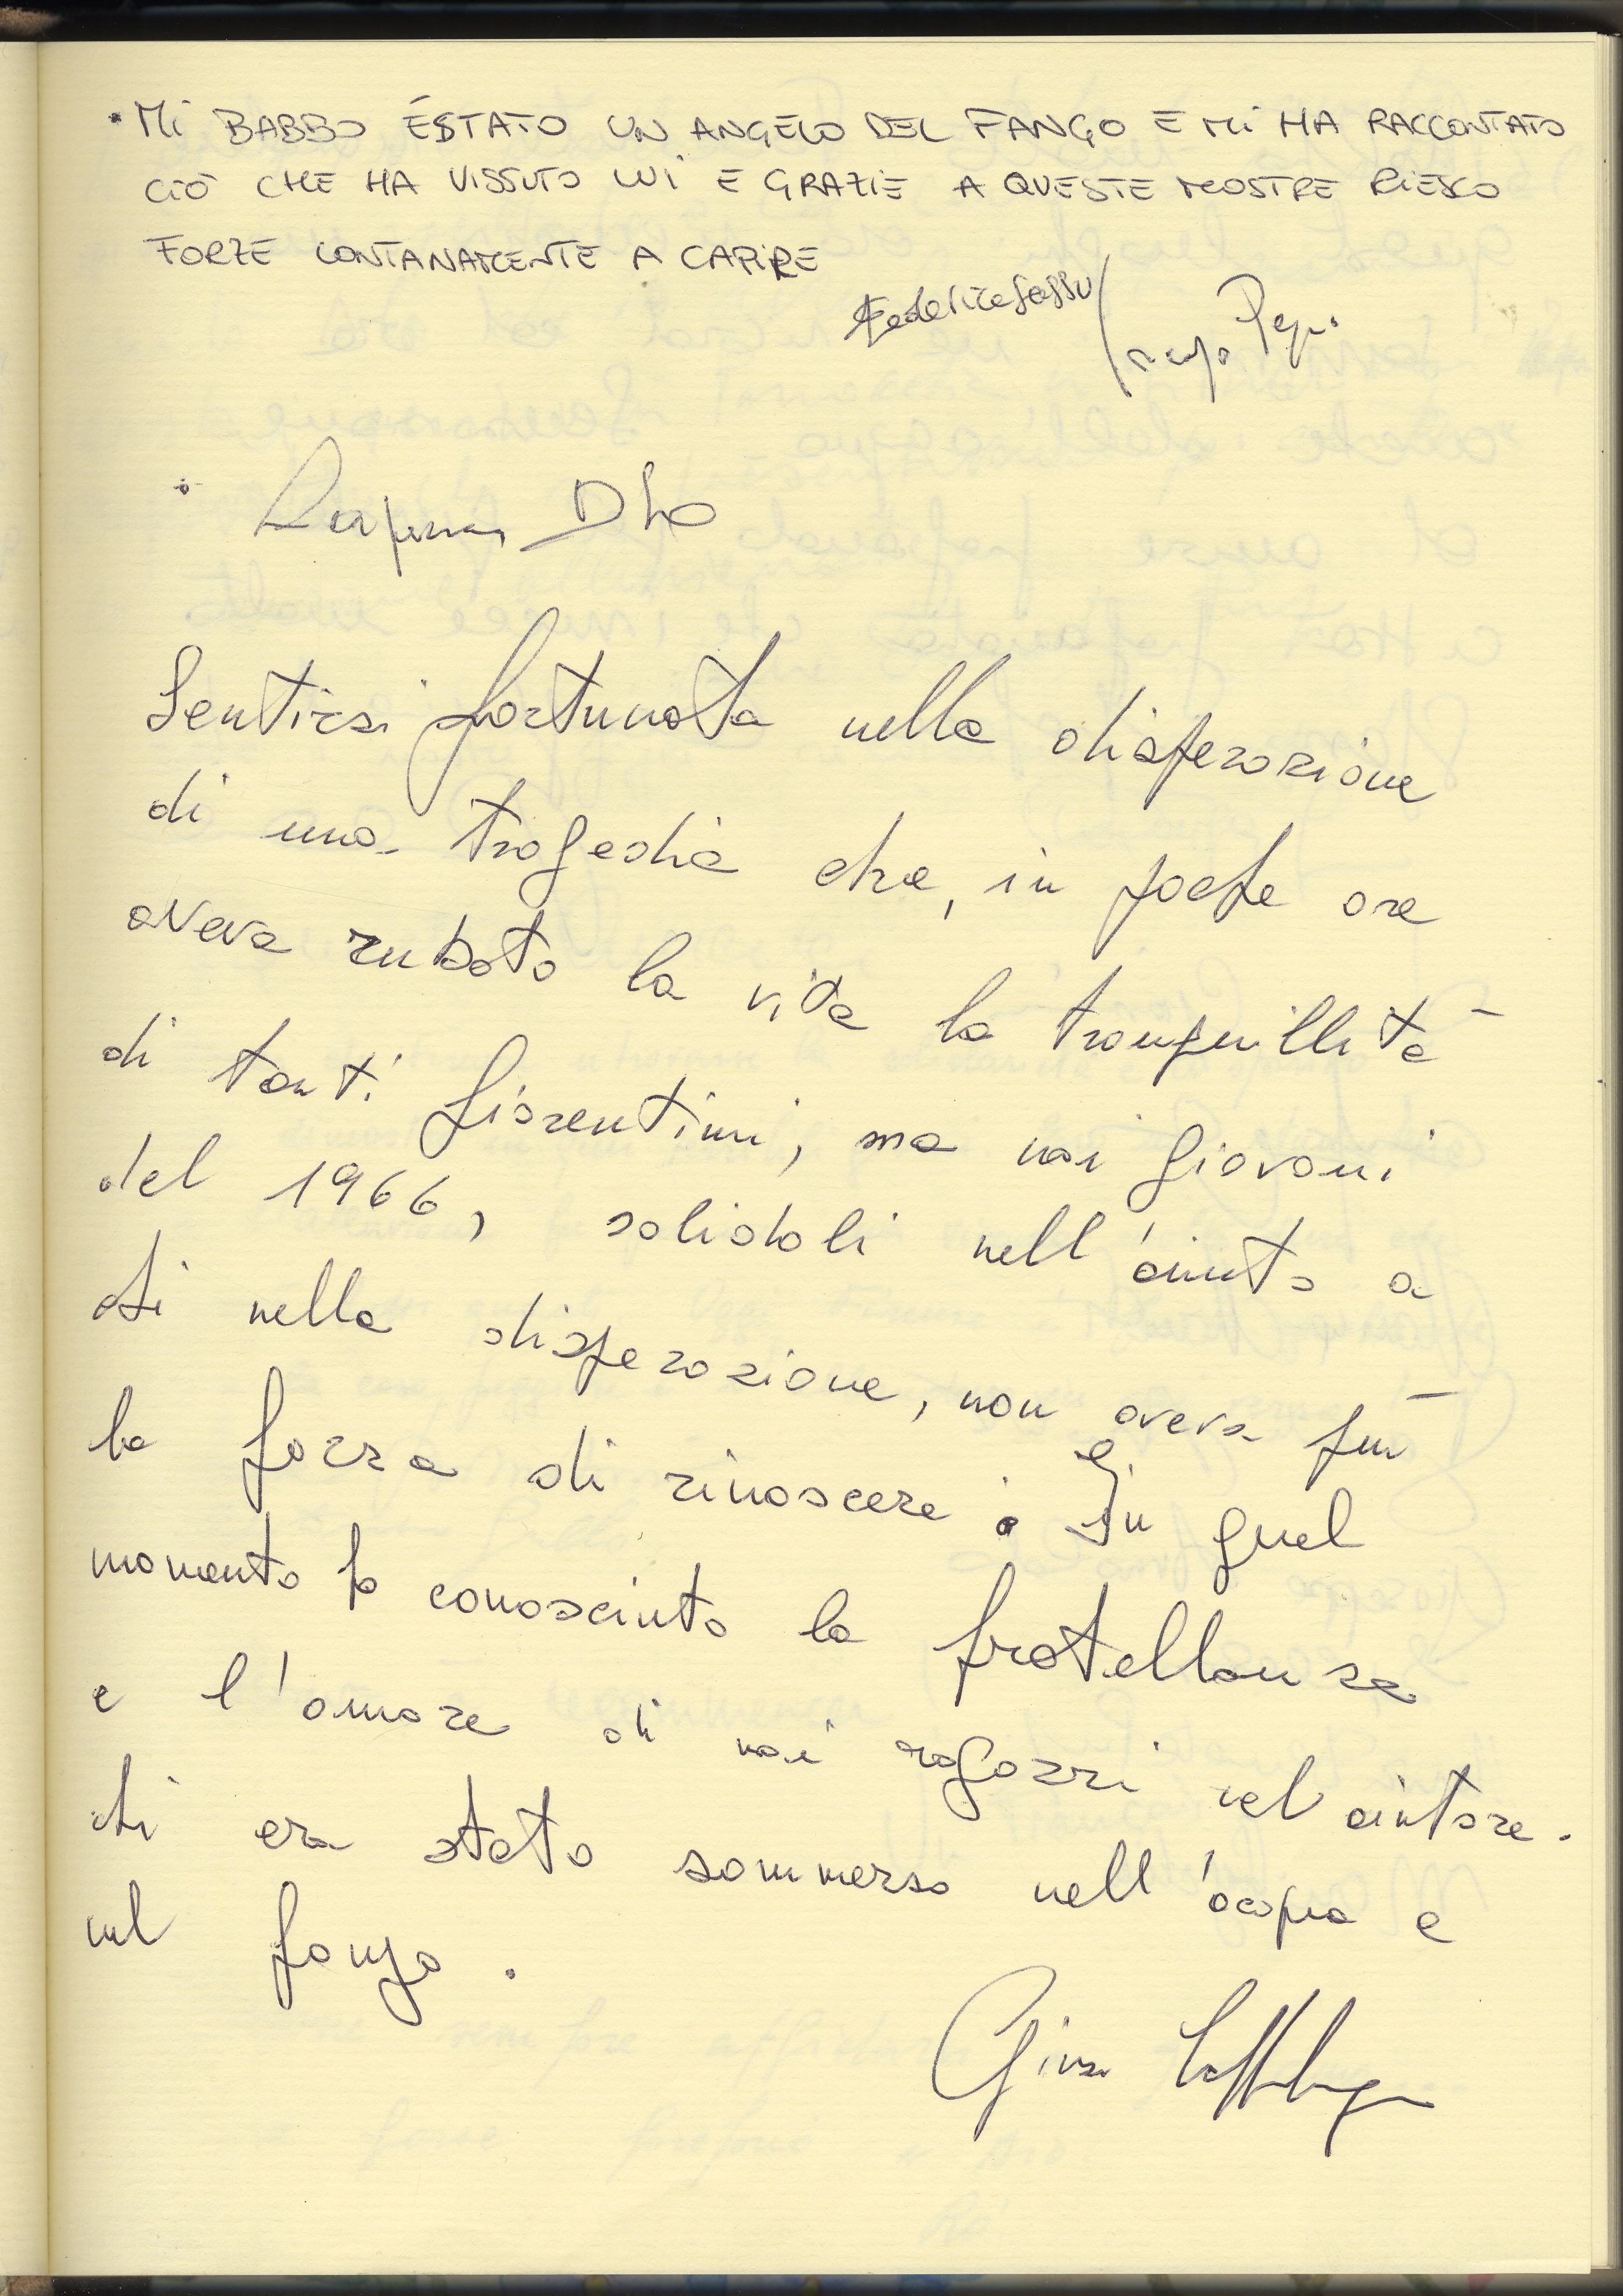 • Mi BABBO É STATO UN ANGELO DEL FANGO E Mi HA RACCONTATO
CIÒ CHE HA VISSUTO LUI E GRAZIE A QUESTE MOSTRE RIESCO
FORZE LONTANAMENTE A CAPIRE
Federica Sassu
Dho
Sentirsi fortunata nella disperazione
di una tragedia che, in poche ore
aveva rubato la vita la tranquillità
di tanti fiorentini, ma noi giovani
del 1966, solidali nell'aiuto a
chi nella disperazione, non aveva più
la forza di rinascere. In quel
momento ho conosciuto la fratellanza
e l'amore di noi ragazzi nel aiutare.
chi era stato sommerso nell'acqua e
nel fango.